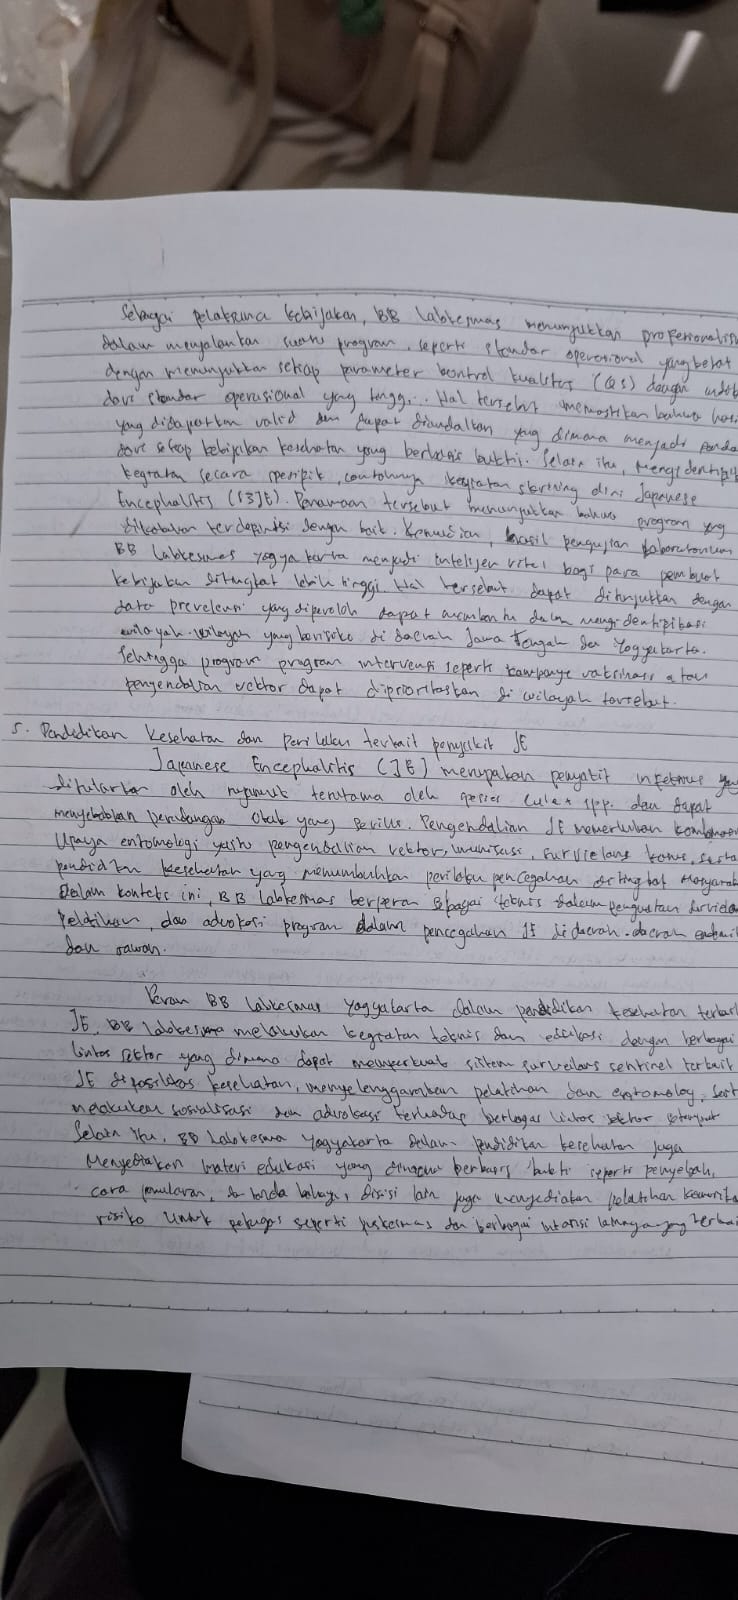 Sebagai pelaksana kebijakan, BB labkesmas menunjukkan profesionalis
dalam menjalankan suatu program, seperti standar operasional yang ketat
dengan menunjukkan setiap parameter kontrol kualitas (QS) dengan
dari standar operasional yang tinggi. Hal tersebut memastikan bahwa has
yang didapatkan valid dan dapat diandalkan yang dimana menjadi
dari setiap kebijakan kesehatan yang berbasis bukti. Selain itu, mengidentifik
kegiatan secara spesifik, contohnya kegiatan skrining dini Japanese
Encephalitis (S3JE). Penamaan tersebut menunjukkan bahwa program yang
dikatakan terdepinisi dengan baik. Kemudian, hasil pengujian laboratorium
BB labkesmas Yogyakarta menjadi intelijen vital bagi para pembuat
kebijakan ditingkat lebih tinggi. Hal tersebut dapat ditunjukkan dengan
data prevelensi yang diperoleh dapat membantu dalam mengidentipikasi
wilayah-wilayah yang berisiko di daerah Jawa Tengah dan Yogyakarta.
Sehingga program program intervensi seperti kampanye vaksinasi atau
pengendalian vektor dapat diprioritaskan di wilayah tersebut.
5. Pendidikan kesehatan dan perilaku terkait penyakit JE
Japanese Encephalitis (JE) merupakan penyakit infeksius yan
ditularkan oleh nyamuk terutama oleh spesies culex spp. dan dapat
menyebabkan peradangan otak yang serius. Pengendalian JE memerlukan
Upaya entomologi yaitu pengendalian vektor, imunisasi, survielans kasus, serta
pendidikan kesehatan yang menumbuhkan perilaku pencegahan ditingkat masyarak
Dalam konteks ini, BB labkesmas berperan sebagai teknis dalam penguatan
Pelatihan, dan advokasi program dalam pencegahan JE di daerah-daerah endemi
dan rawan.
Peran BB labkesmas Yogyakarta dalam pendidikan kesehatan terkai
JE, BB labkesmas melakukan kegiatan teknis dan edukasi dengan berbagai
lintas sektor yang dimana dapat memperkuat sistem surveilans sentinel terkait
JE di fasilitas kesehatan, menyelenggarakan pelatihan dan entomology, sert
melakukan sosialisasi dan advokasi terhadap berbagai lintas sektor
Selain itu, BB labkesmas Yogyakarta dalam pendidikan kesehatan juga
Menyediakan materi edukasi yang berbasis bukti seperti penyebab,
cara penularan, dan tanda bahaya, disisi lain juga menyediakan pelatihan
risiko untuk petugas seperti puskesmas dan berbagai intansi lainnya yang terkai